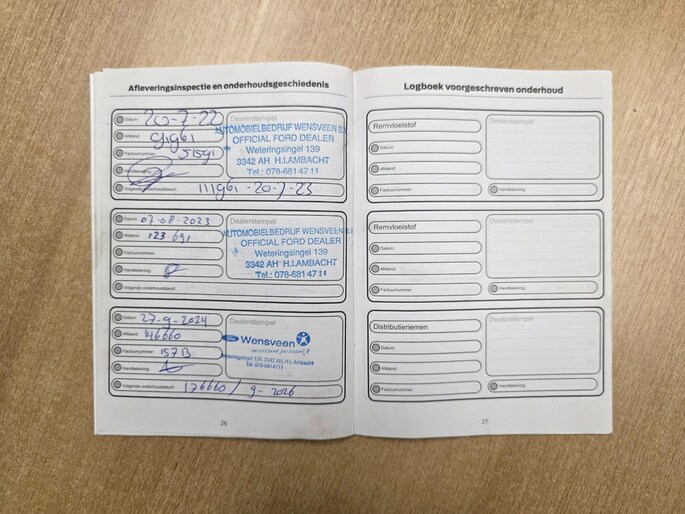 Afleveringsinspectie en onderhoudsgeschiedenis
Datum 20-7-22
Afstand 91961
Factuurnummer 51591
Volgende onderhoudsbeurt 111961 - 20-7-23
Dealerstempel
AUTOMOBIELBEDRIJF WENSVEEN B.V.
OFFICIAL FORD DEALER
Weteringsingel 139
3342 AH H.I.AMBACHT
Tel.: 078-681 47 11
Datum 07-08-2023
Afstand 123 691
Factuurnummer
Handtekening
Volgende onderhoudsbeurt
Dealerstempel
AUTOMOBIELBEDRIJF WENSVEEN B.V.
OFFICIAL FORD DEALER
Weteringsingel 139
3342 AH H.I.AMBACHT
Tel.: 078-681 47 11
Datum 27-9-2024
Afstand 146660
Factuurnummer 157B
Handtekening
Volgende onderhoudsbeurt 176660 / 9-2026
Dealerstempel
Wensveen
Weteringsingel 139, 3342 AH, H.I. Ambacht
Tel. 078-6814711
26
Logboek voorgeschreven onderhoud
Remvloeistof
Datum
Afstand
Factuurnummer
Dealerstempel
Handtekening
Remvloeistof
Datum
Afstand
Factuurnummer
Dealerstempel
Handtekening
Distributieriemen
Datum
Afstand
Factuurnummer
Dealerstempel
Handtekening
27